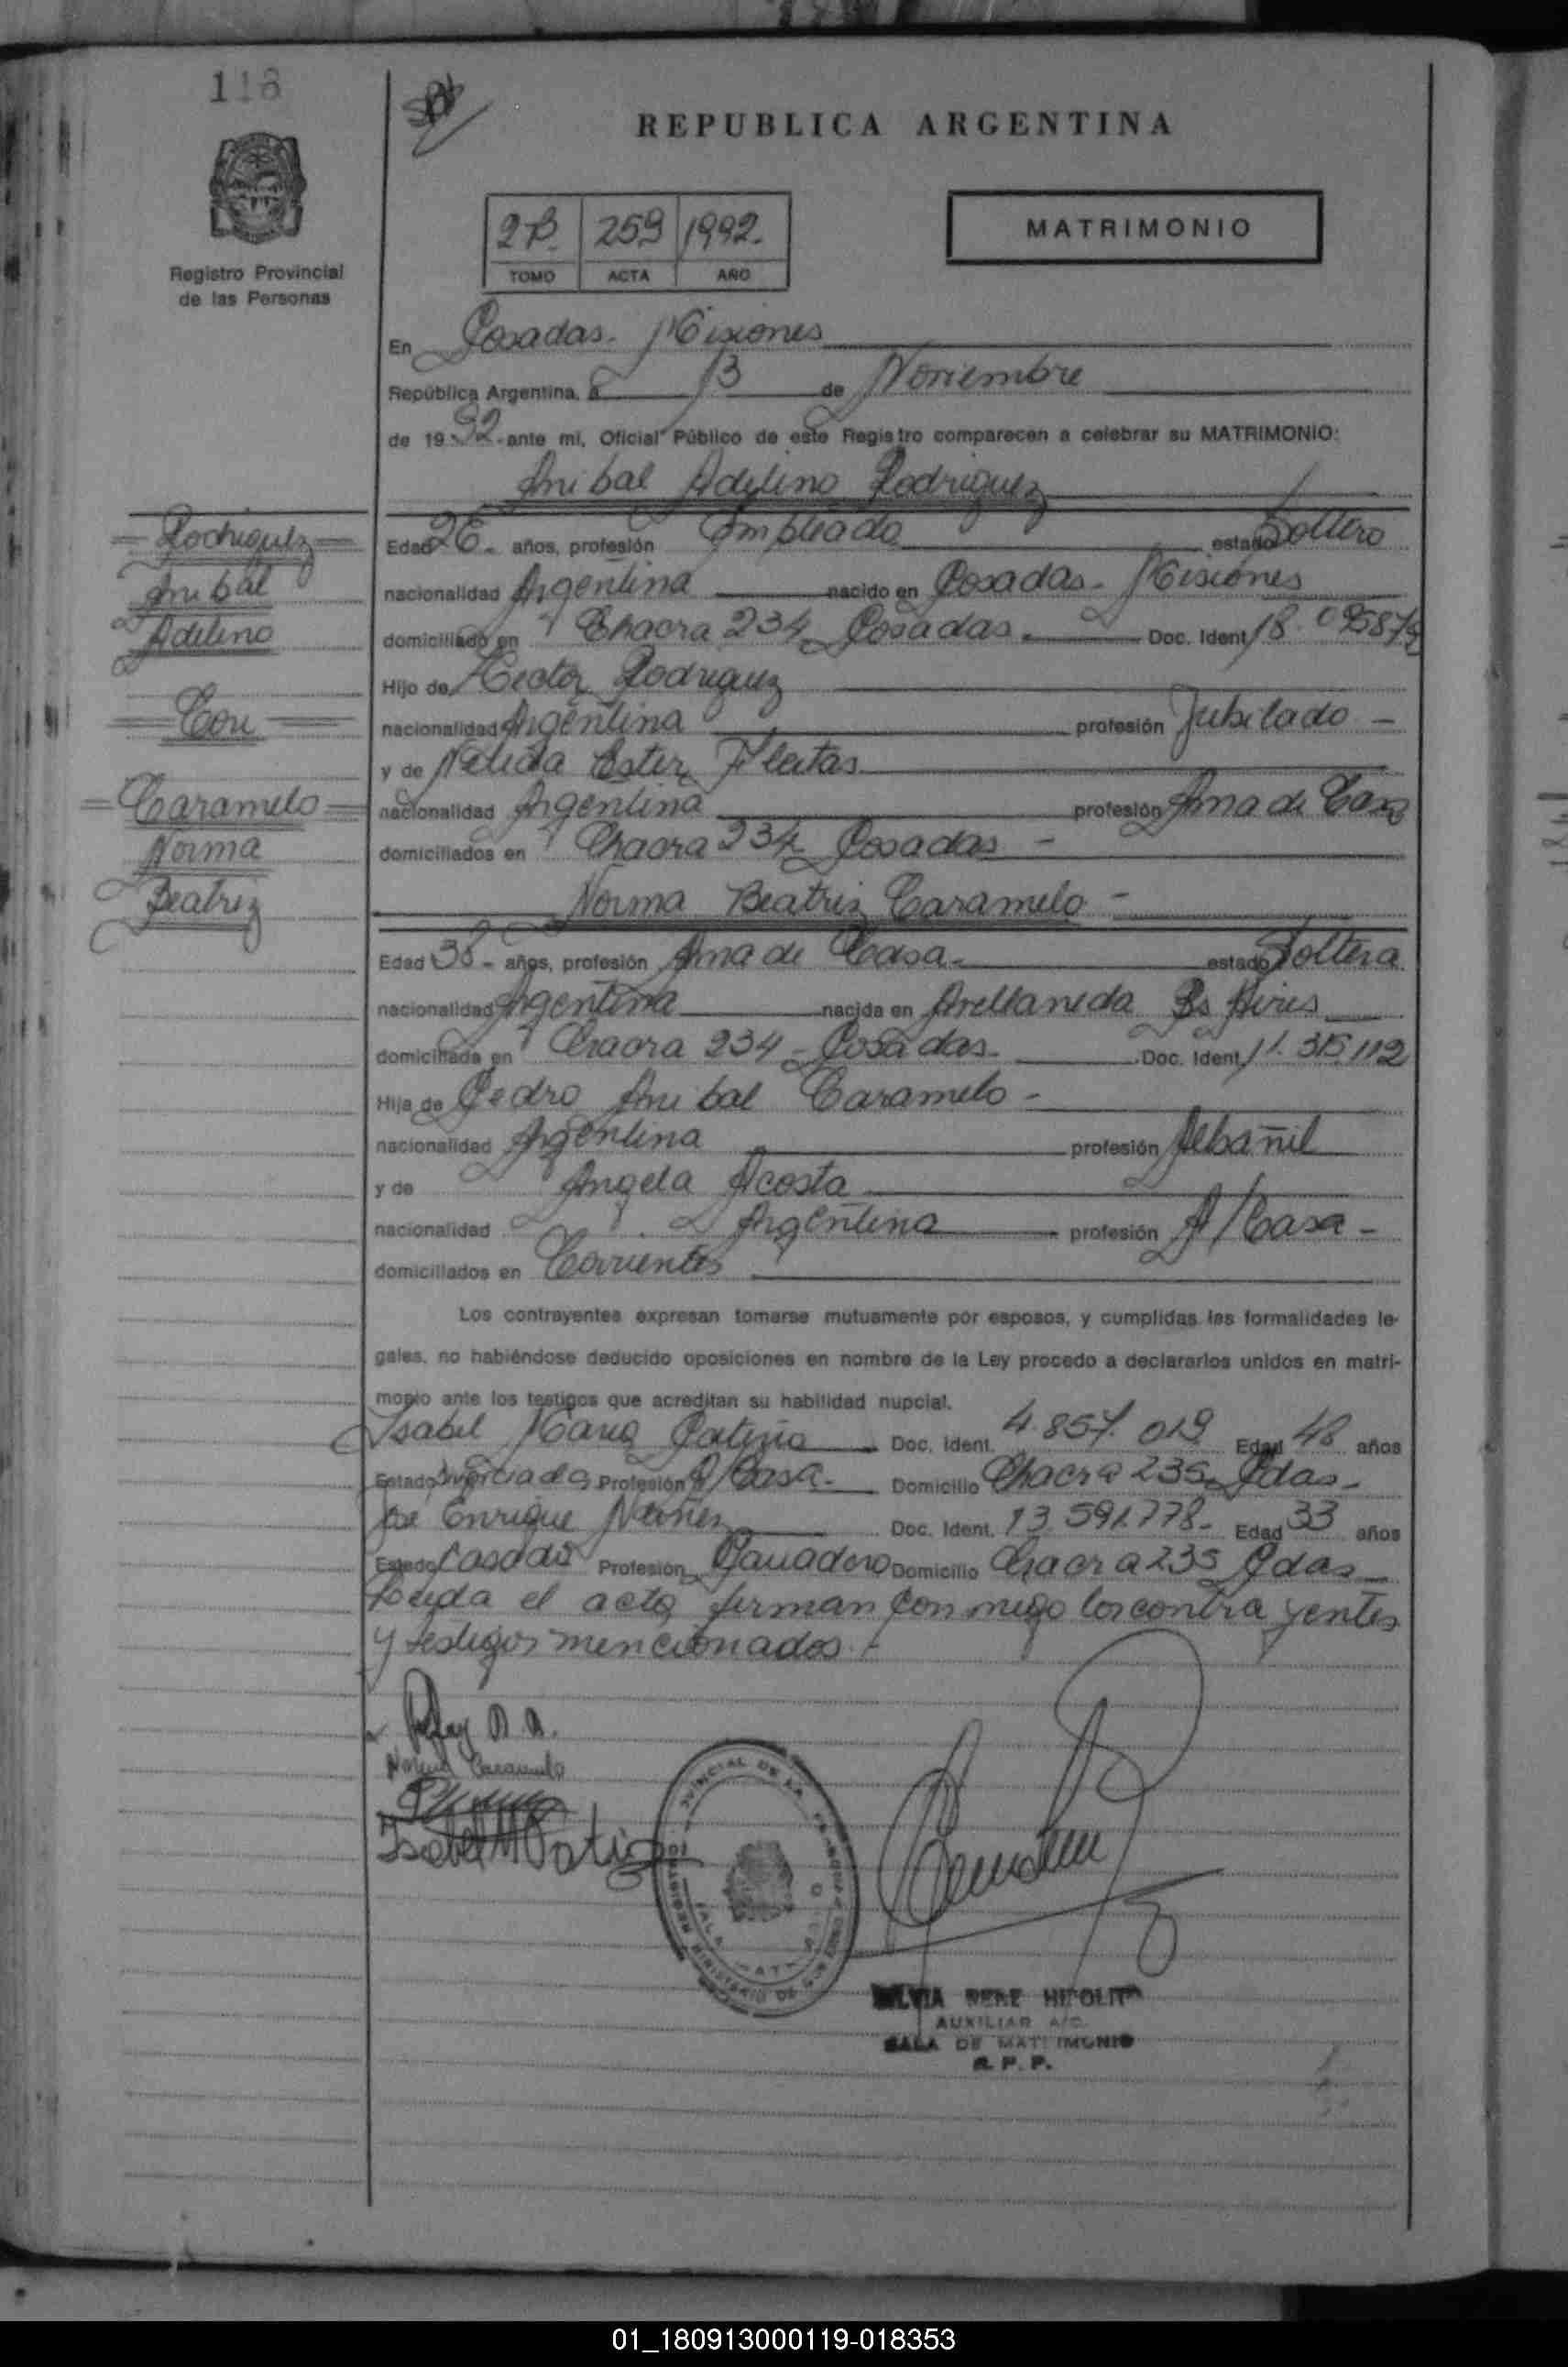 118
REPUBLICA ARGENTINA
Registro Provincial
de las Personas
2B. 259 1992.
TOMO ACTA AÑO
MATRIMONIO
En Posadas. Misiones
República Argentina, a 13 de Noviembre
de 1992. ante mi, Oficial Público de este Registro comparecen a celebrar su MATRIMONIO:
Anibal Adelino Rodriguez
Rodriguez
Anibal
Adelino
Con
Caramelo
Norma
Beatriz
Edad 26. años, profesión Empleado estado Soltero
nacionalidad Argentina nacido en Posadas. Misiones
domiciliado en Chacra 234 Posadas. Doc. Ident. 18.
Hijo de Hector Rodriguez
nacionalidad Argentina profesión Jubilado -
y de Nelida Ester Fleitas
nacionalidad Argentina profesión Ama de Casa
domiciliados en Chacra 234 Posadas -
Norma Beatriz Caramelo -
Edad 38 - años, profesión Ama de Casa. estado Soltera
nacionalidad Argentina nacida en Avellaneda Bs Aires
domiciliada en Chacra 234 - Posadas. Doc. Ident. 11.315.112
Hija de Pedro Anibal Caramelo -
nacionalidad Argentina profesión Albañil
y de Angela Acosta
nacionalidad Argentina profesión A/Casa -
domiciliados en Corrientes
Los contrayentes expresan tomarse mutuamente por esposos, y cumplidas las formalidades le-
gales, no habiéndose deducido oposiciones en nombre de la Ley procedo a declararlos unidos en matri-
monio ante los testigos que acreditan su habilidad nupcial.
Isabel Maria Patiño Doc. Ident. 4.857.019 Edad 48 años
Estado Divorciada Profesión A/Casa. Domicilio Chacra 235 Pdas.
José Enrique Doc. Ident. 13.591.778- Edad 33 años
Estado Casado Profesión Panadero Domicilio Chacra 235 Pdas
Leida el acta firman conmigo los contrayentes
y testigos mencionados.-
Norma Caramelo
Isabel M Patiño
SILVIA RENE HIPOLITO
AUXILIAR A/C.
SALA DE MATRIMONIO
R. P. P.
01_180913000119-018353